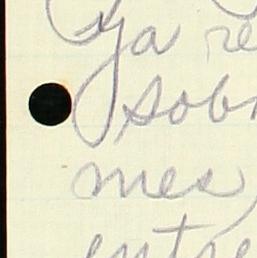 Ya re
sob
mes,
entre